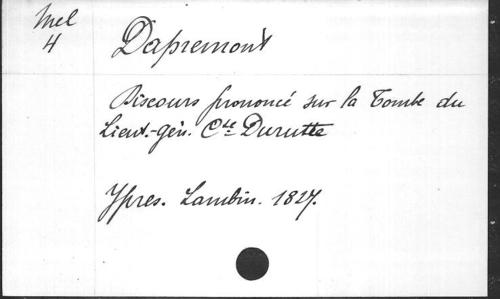 Mel
4
Dapremont
Discours prononcé sur la Tombe du
Lieut.-gén. Cte Durutte
Ypres. Lambin. 1827.